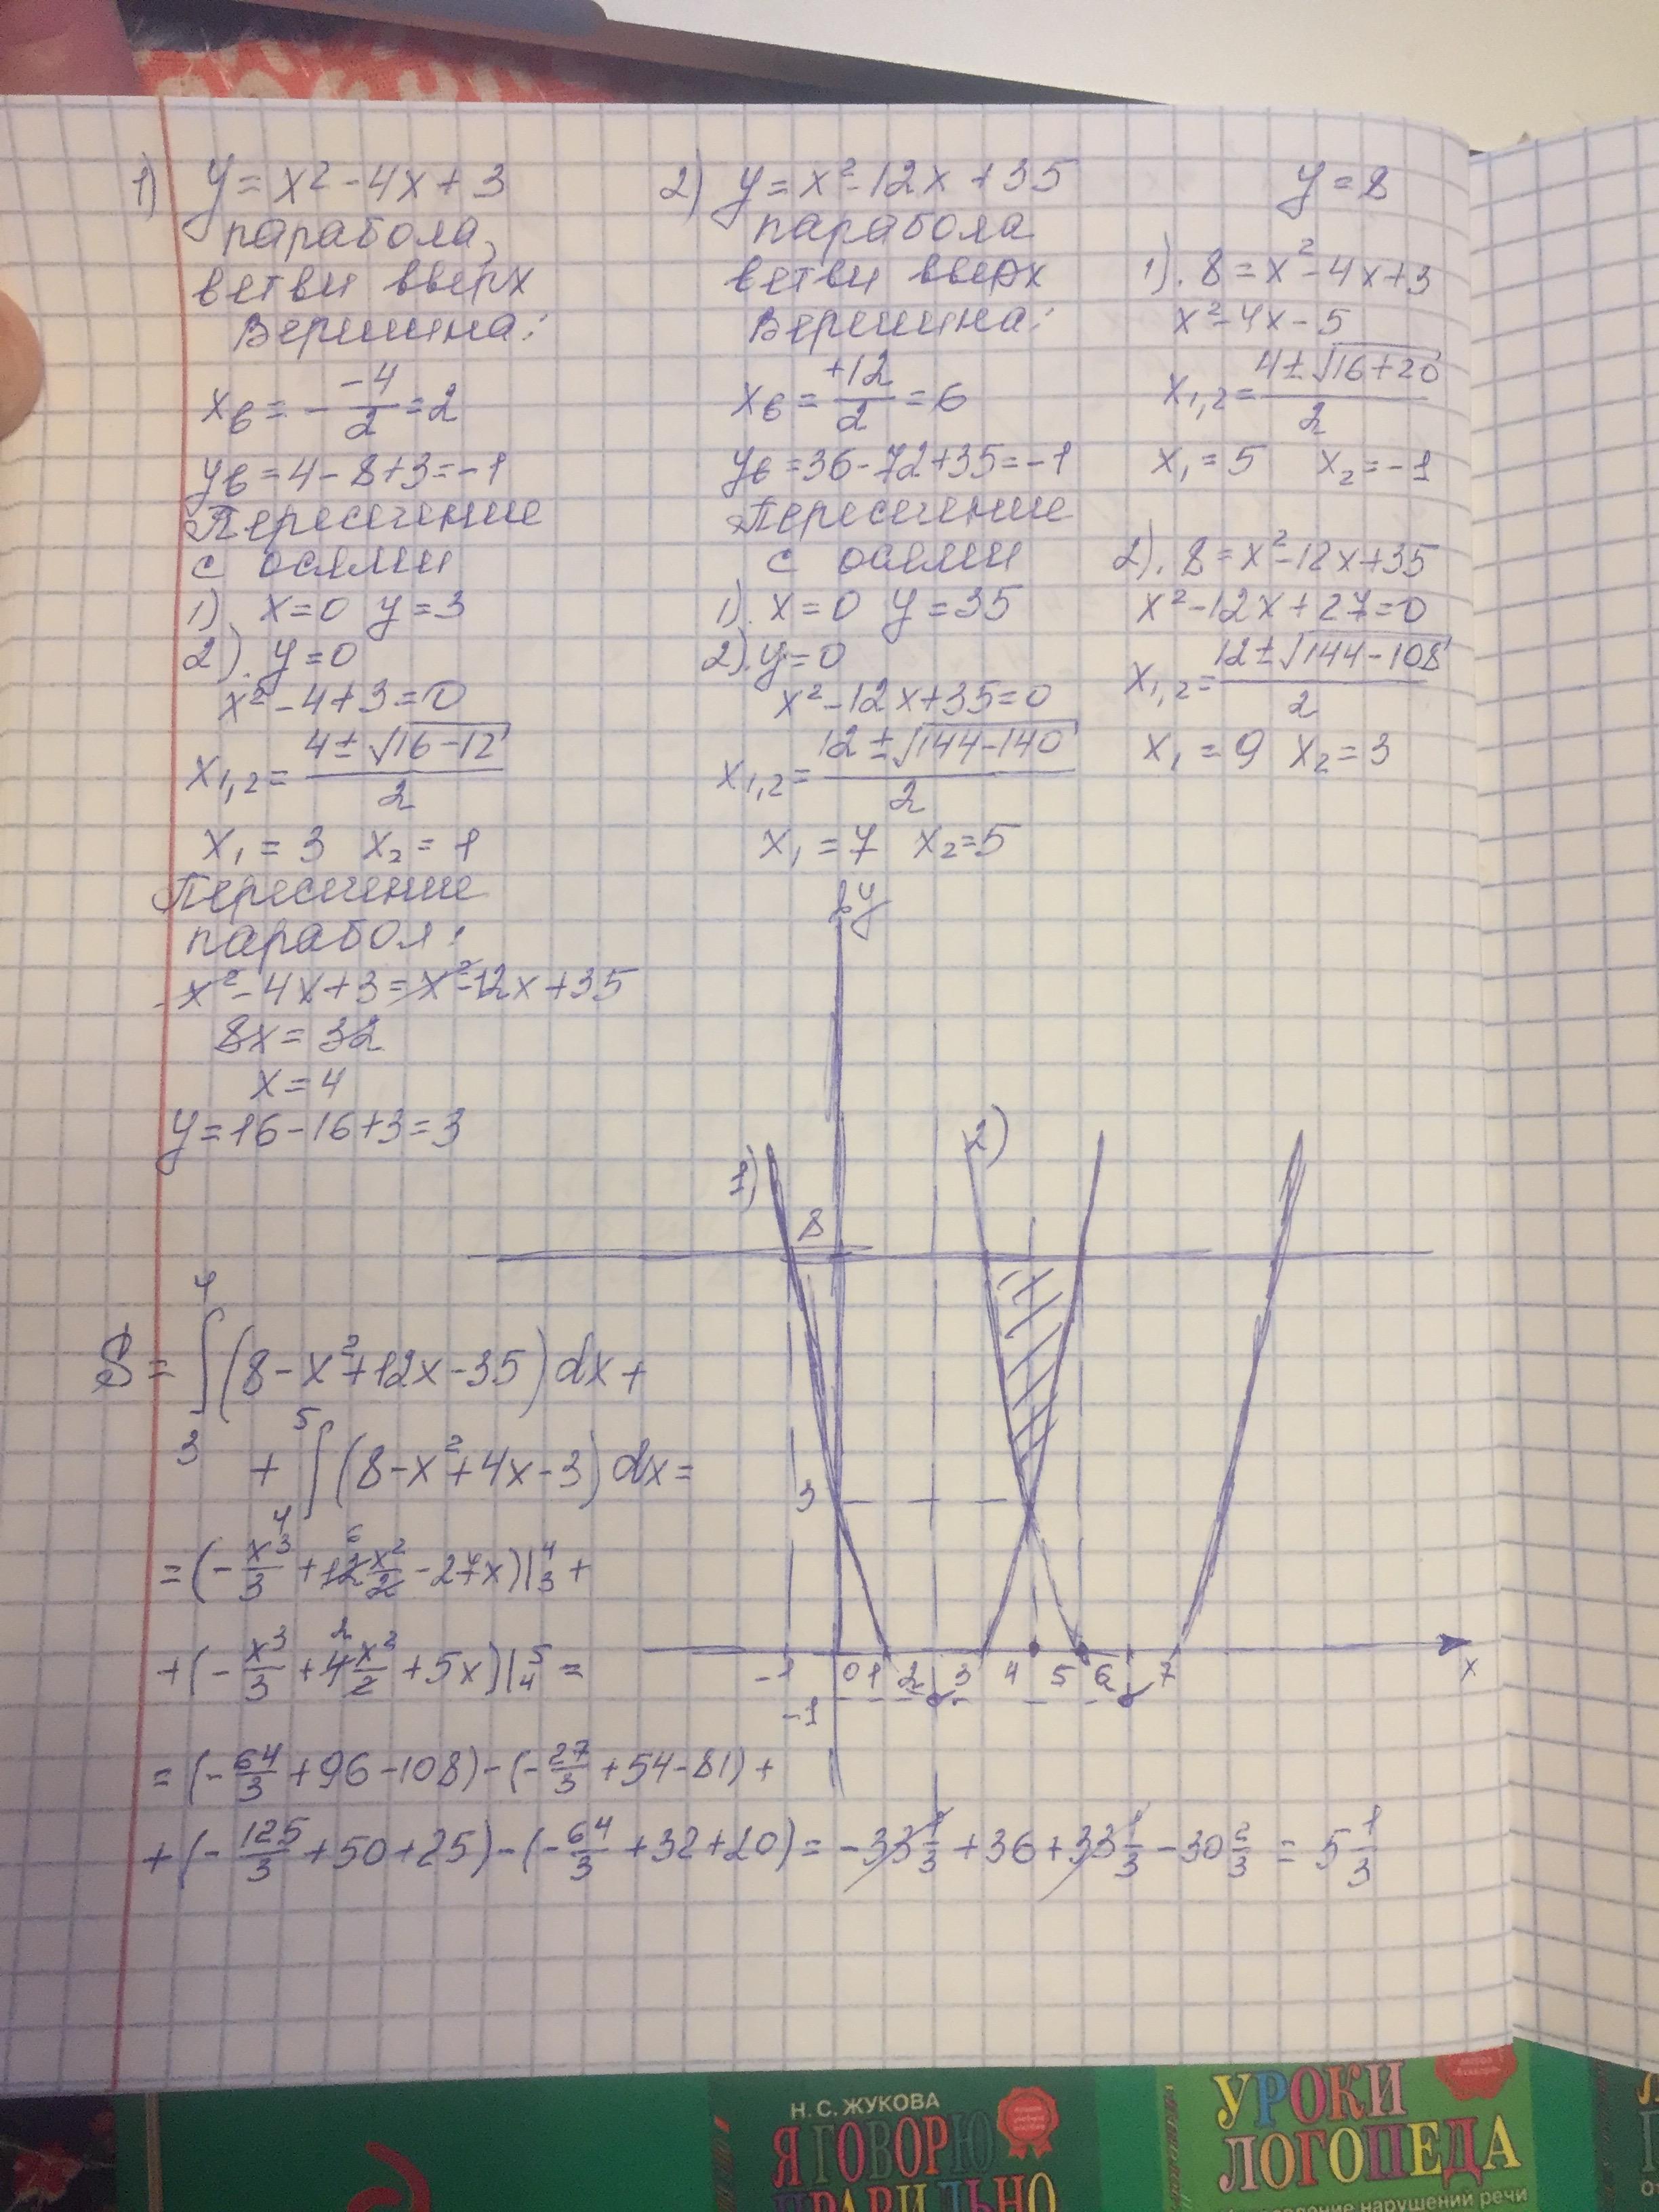 1) y = x² - 4x + 3
парабола,
ветви вверх
Вершина:
xв = - -4/2 = 2
yв = 4 - 8 + 3 = -1
Пересечение
с осями
1). x = 0 y = 3
2). y = 0
x² - 4 + 3 = 0
x₁,₂ = (4 ± √(16 - 12))/2
x₁ = 3 x₂ = 1
Пересечение
парабол:
x² - 4x + 3 = x² - 12x + 35
8x = 32
x = 4
y = 16 - 16 + 3 = 3
2) y = x² - 12x + 35
парабола
ветви вверх
Вершина:
xв = +12/2 = 6
yв = 36 - 72 + 35 = -1
Пересечение
с осями
1). x = 0 y = 35
2). y = 0
x² - 12x + 35 = 0
x₁,₂ = (12 ± √(144 - 140))/2
x₁ = 7 x₂ = 5
y = 8
1). 8 = x² - 4x + 3
x² - 4x - 5
x₁,₂ = (4 ± √(16 + 20))/2
x₁ = 5 x₂ = -1
2). 8 = x² - 12x + 35
x² - 12x + 27 = 0
x₁,₂ = (12 ± √(144 - 108))/2
x₁ = 9 x₂ = 3
y
1)
2)
8
3
-1 0 1 2 3 4 5 6 7 x
-1
S = ∫₃⁴ (8 - x² + 12x - 35) dx +
+ ∫₄⁵ (8 - x² + 4x - 3) dx =
= (- x³/3 + 12 6 x²/2 - 27x) |₃⁴ +
+ (- x³/3 + 4 2 x²/2 + 5x) |₄⁵ =
= (- 64/3 + 96 - 108) - (- 27/3 + 54 - 81) +
+ (- 125/3 + 50 + 25) - (- 64/3 + 32 + 20) = -33 1/3 + 36 + 33 1/3 - 30 2/3 = 5 1/3
Н. С. ЖУКОВА
Я ГОВОРЮ
ПРАВИЛЬНО
УРОКИ
ЛОГОПЕДА
нарушений речи